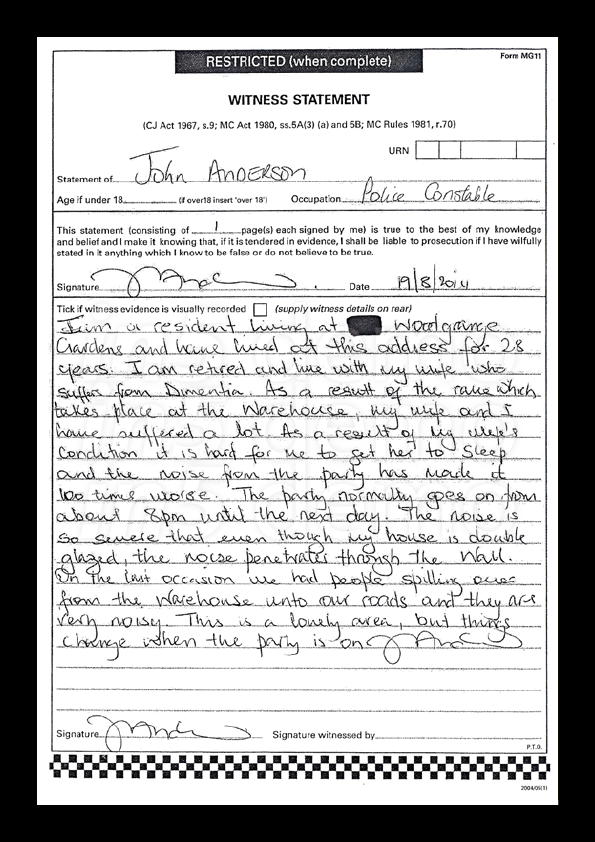 RESTRICTED (when complete)
Form MG11
WITNESS STATEMENT
(CJ Act 1967, s.9; MC Act 1980, ss.5A(3) (a) and 5B; MC Rules 1981, r.70)
URN
Statement of John Anderson
Age if under 18 (if over18 insert 'over 18') Occupation Police Constable
This statement (consisting of 1 page(s) each signed by me) is true to the best of my knowledge
and belief and I make it knowing that, if it is tendered in evidence, I shall be liable to prosecution if I have wilfully
stated in it anything which I know to be false or do not believe to be true.
Signature Date 19/8/2014
Tick if witness evidence is visually recorded (supply witness details on rear)
I am a resident living at Woodgrange
Gardens and have lived at this address for 28
years. I am retired and live with my wife who
suffer from Dimentia. As a result of the rave which
takes place at the Warehouse, my wife and I
have suffered a lot. As a result of my wife's
condition it is hard for me to get her to sleep
and the noise from the party has made it
100 times worse. The party normally goes on from
about 8pm until the next day. The noise is
so severe that even though my house is double
glazed, the noise penetrates through the wall.
On the last occasion we had people spilling over
from the warehouse unto our roads and they are
very noisy. This is a lonely area, but things
change when the party is on
Signature Signature witnessed by
P.T.O.
2004/05(1)